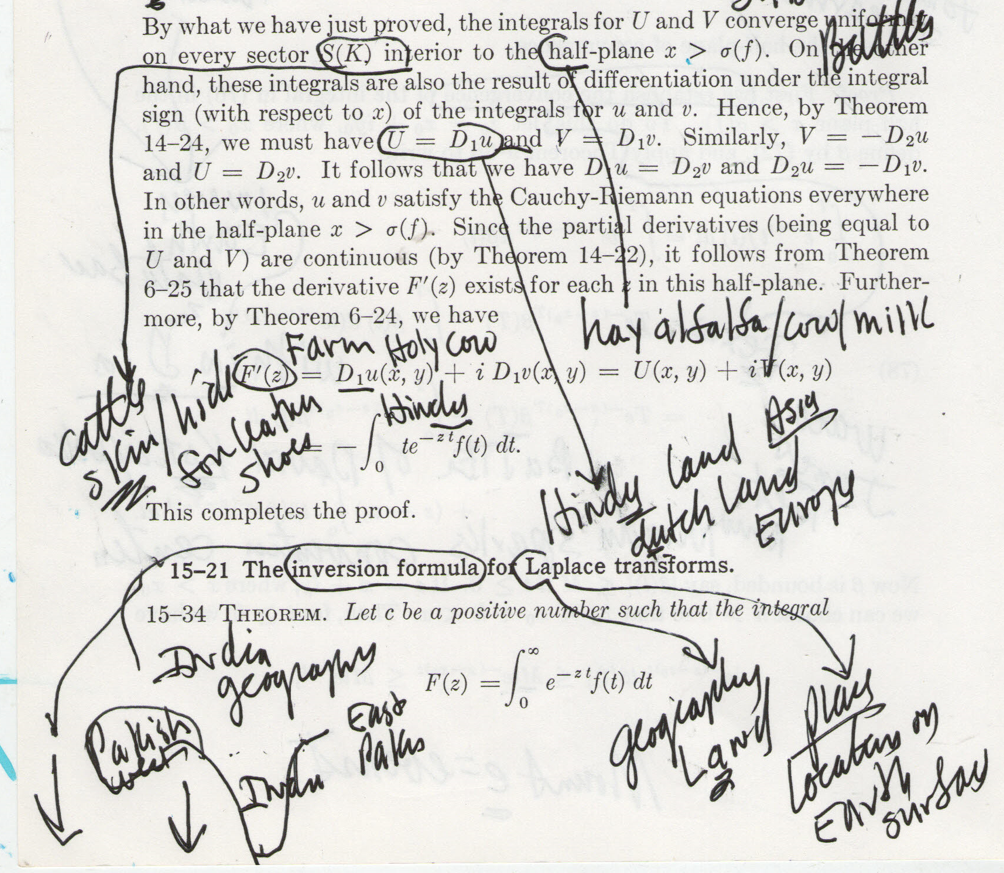 By what we have just proved, the integrals for U and V converge uniformly
Battles
on every sector S(K) interior to the half-plane x > σ(f). On the other
hand, these integrals are also the result of differentiation under the integral
sign (with respect to x) of the integrals for u and v. Hence, by Theorem
14–24, we must have U = D₁u and V = D₁v. Similarly, V = −D₂u
and U = D₂v. It follows that we have D₁u = D₂v and D₂u = −D₁v.
In other words, u and v satisfy the Cauchy-Riemann equations everywhere
in the half-plane x > σ(f). Since the partial derivatives (being equal to
U and V) are continuous (by Theorem 14–22), it follows from Theorem
6–25 that the derivative F′(z) exists for each z in this half-plane. Further-
more, by Theorem 6–24, we have
hay alfalfa/cow/milk
Farm Holy cow
F′(z) = D₁u(x, y) + i D₁v(x, y) = U(x, y) + iV(x, y)
cattle
skin/hide
for leather
shoes
Hindu
= − ∫₀ te⁻ᶻᵗf(t) dt.
Hindu land Asia
dutch land
Europe
This completes the proof.
15–21 The inversion formula for Laplace transforms.
15–34 THEOREM. Let c be a positive number such that the integral
India
geography
F(z) = ∫₀^∞ e⁻ᶻᵗf(t) dt
geography
Land
places
Locations on
Earth
surface
Pakist
west
India
East
Pakis